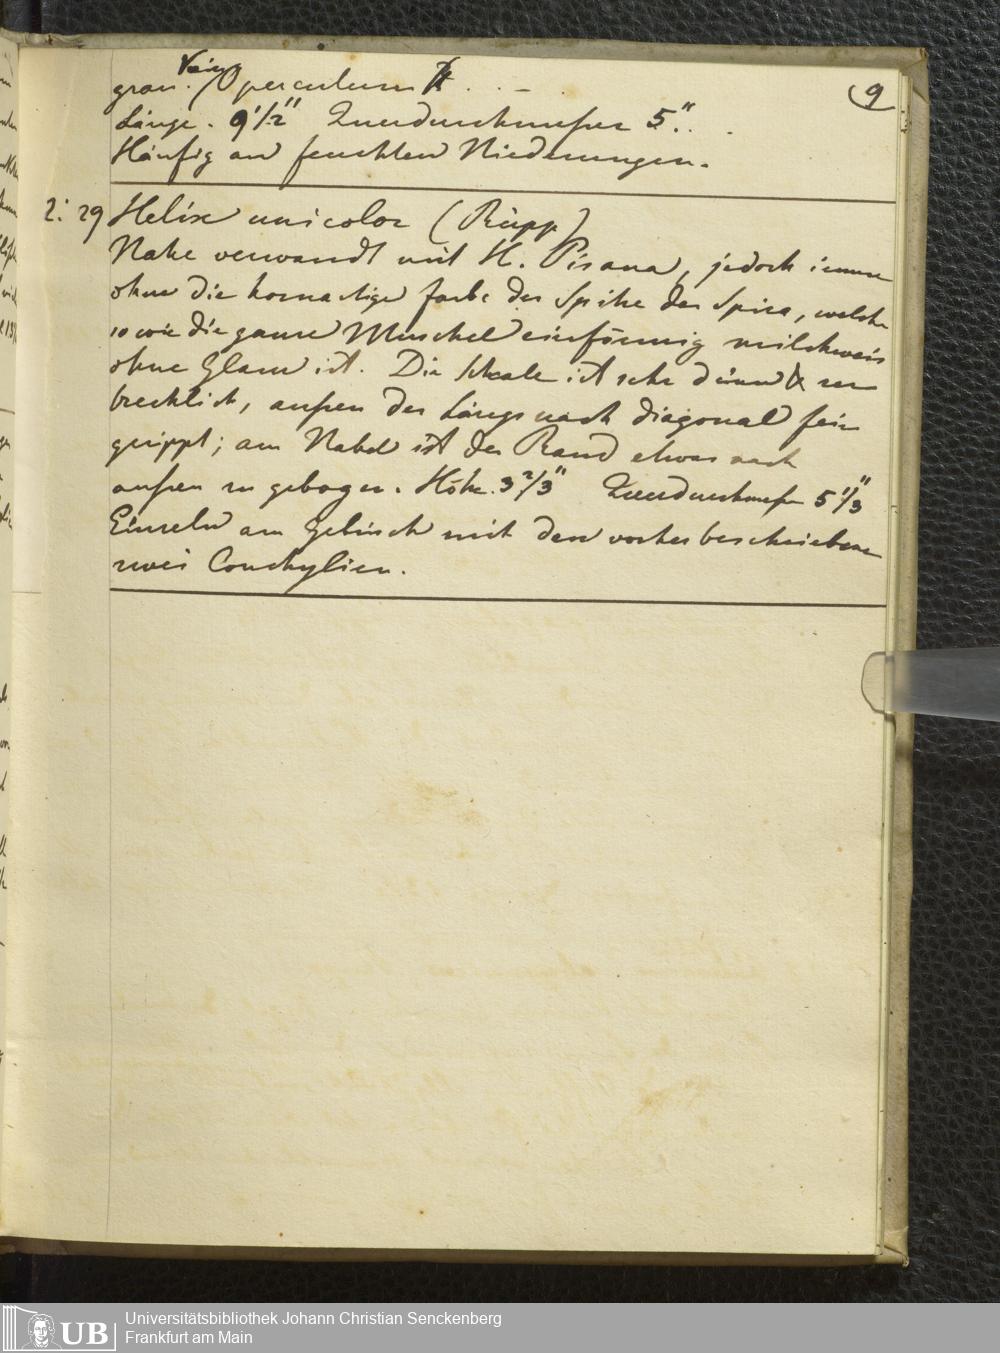 9
grau. Kein Operculum
Länge. 9 1/2" Querdurchmesser 5".
Häufig an feuchten Niederungen.
2: 29 Helix unicolor (Rüpp)
Nahe verwandt mit H. Pisana, jedoch immer
ohne die hornartige farbe der Spitze der Spira, welche
so wie die ganze Muschel einförmig milchweis
ohne Glanz ist. Die Schale ist sehr dünn & zer
brechlich, außen der Länge nach diagonal fein
gerippt; am Nabel ist der Rand etwas nach
außen zu gebogen. Höhe. 3 2/3" Querdurchmesser 5 1/3"
Einzeln am Gebüsch mit den vorher beschriebenen
zwei Conchylien.
UB
Universitätsbibliothek Johann Christian Senckenberg
Frankfurt am Main